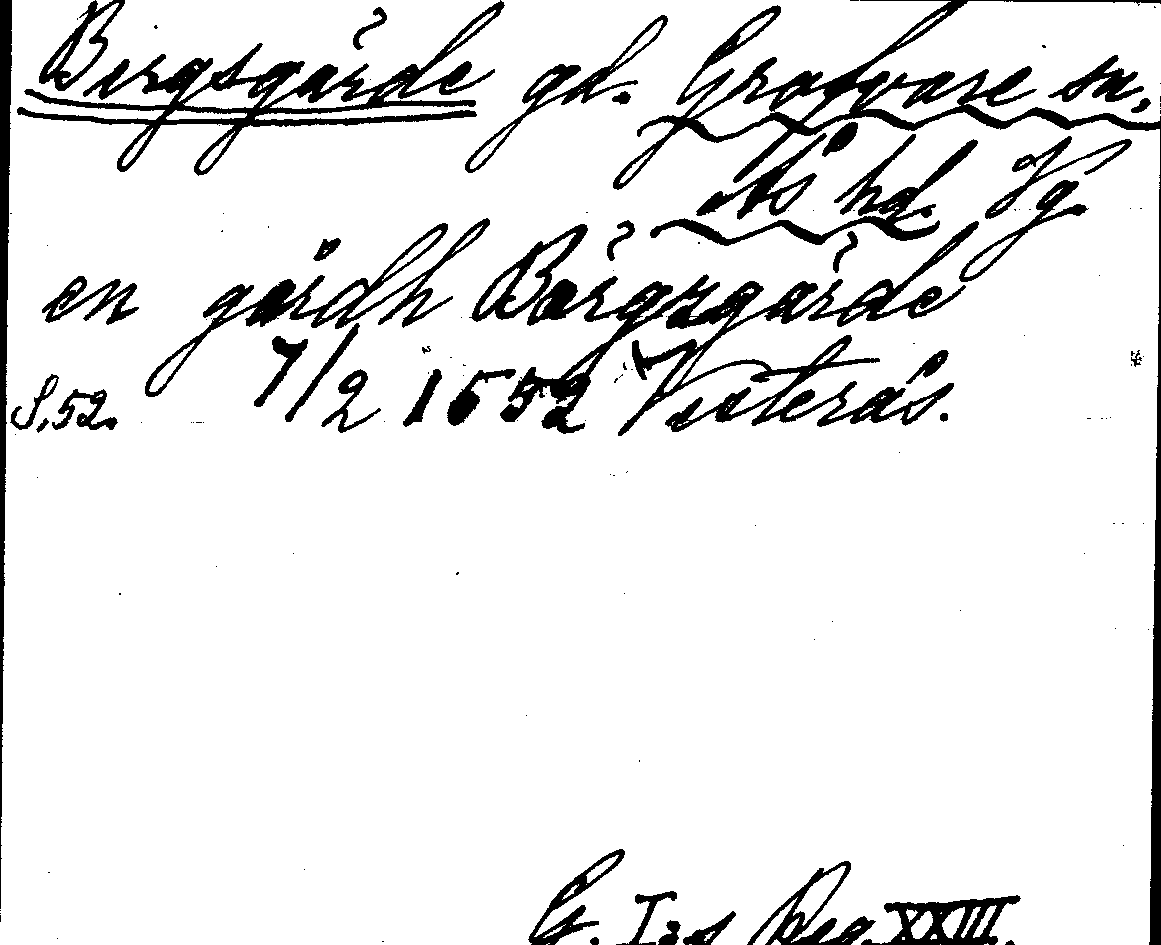 Birgsgärde gd. Grolanda sn,
Ås hd. Vg.
en gårdh Bärgzgärde
S. 52. 7/2 1552 Västerås.
G. I:s Reg. XXIII.